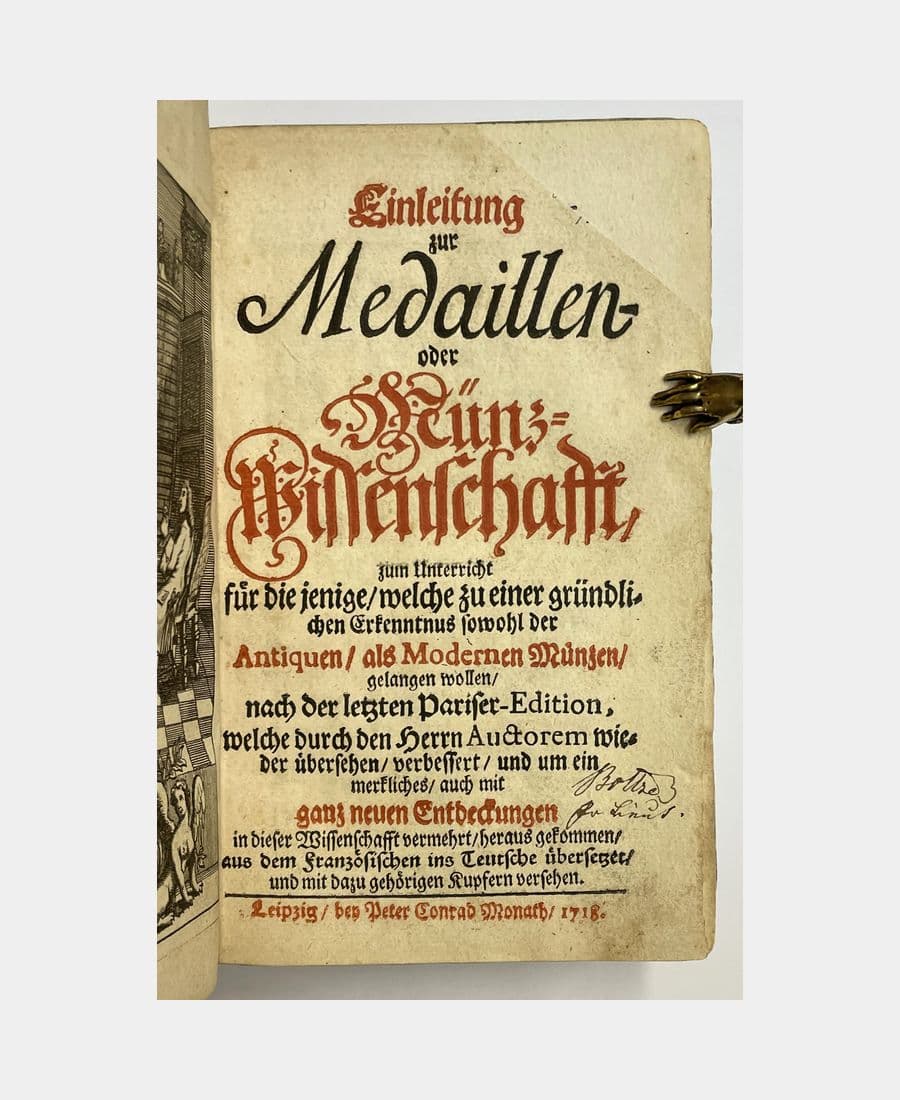 Einleitung
zur
Medaillen-
oder
Münz-
Wissenschafft,
zum Unterricht
für die jenige/ welche zu einer gründli-
chen Erkenntnus sowohl der
Antiquen/ als Modernen Münzen/
gelangen wollen/
nach der letzten Pariser-Edition,
welche durch den Herrn Auctorem wie-
der übersehen/ verbessert/ und um ein
merkliches/ auch mit
ganz neuen Entdeckungen
in dieser Wissenschafft vermehrt/ heraus gekommen/
aus dem Französischen ins Teutsche übersetzet/
und mit dazu gehörigen Kupfern versehen.
Leipzig/ bey Peter Conrad Monath/ 1718.